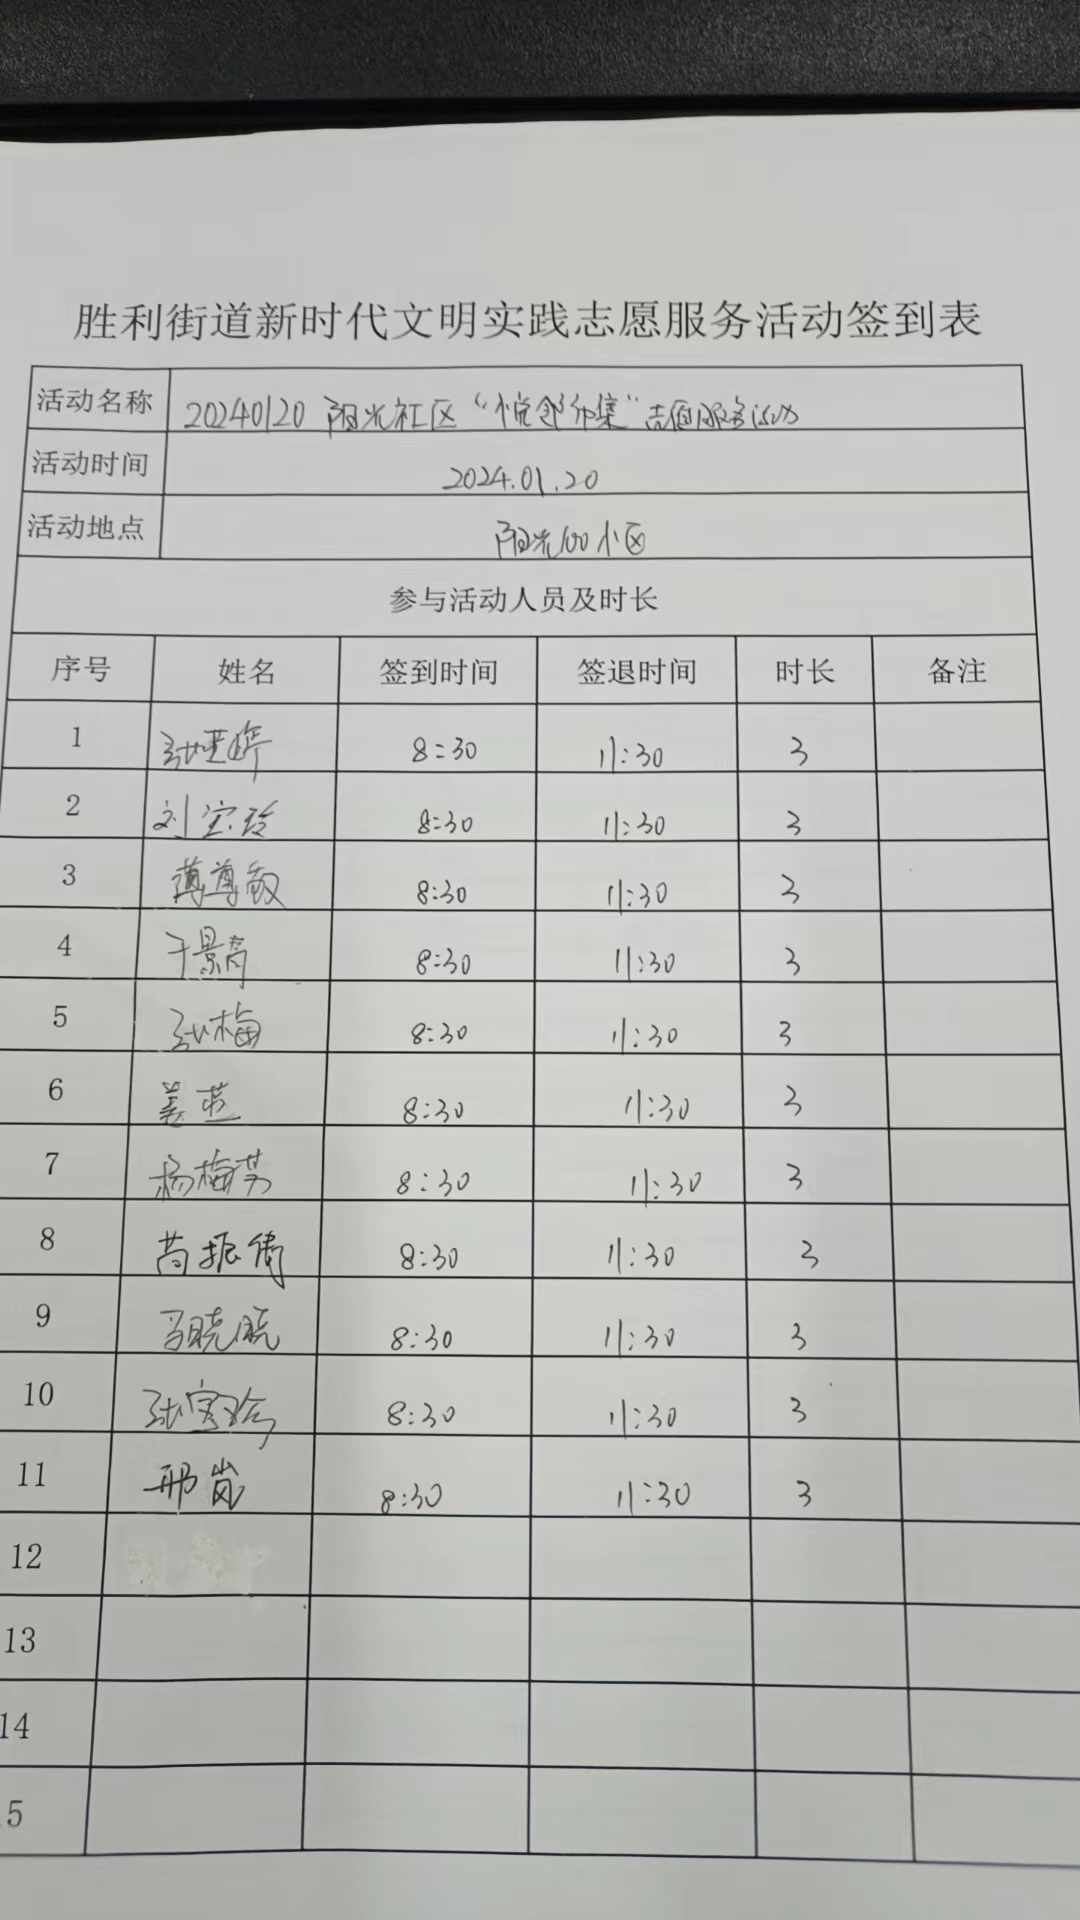 胜利街道新时代文明实践志愿服务活动签到表
活动名称 20240120 阳光社区“悦邻市集”志愿服务活动
活动时间 2024.01.20
活动地点 阳光100小区
参与活动人员及时长
序号 姓名 签到时间 签退时间 时长 备注
1 张亚婷 8:30 11:30 3
2 刘宝玲 8:30 11:30 3
3 薄尊敏 8:30 11:30 3
4 于景高 8:30 11:30 3
5 张梅 8:30 11:30 3
6 姜燕 8:30 11:30 3
7 杨梅芳 8:30 11:30 3
8 苘振街 8:30 11:30 3
9 马晓晓 8:30 11:30 3
10 张宝珍 8:30 11:30 3
11 邢岚 8:30 11:30 3
12
13
14
5